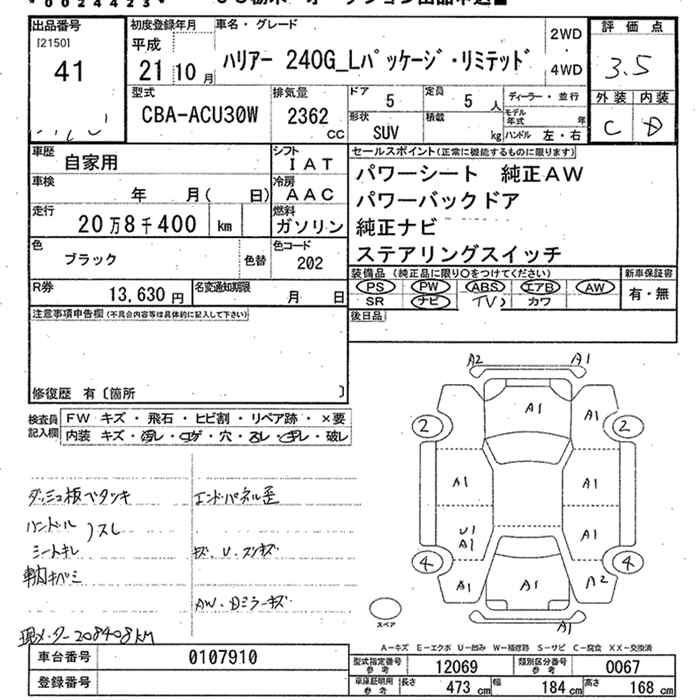 出品番号
[2150]
41
初度登録年月
平成
21年10月
車名・グレード
ハリアー 240G_Lパッケージ・リミテッド
2WD
4WD
評価点
3.5
外装 内装
C D
型式
CBA-ACU30W
排気量
2362
CC
ドア 5
定員 5 人
形状 SUV
積載 kg
ディーラー・並行
モデル年式 年
ハンドル 左・右
車歴
自家用
シフト
IAT
車検
年 月( 日)
冷房
AAC
走行
20万8千400 km
燃料
ガソリン
色
ブラック
色替
色コード
202
R券
13,630 円
名変通知期限
月 日
セールスポイント(正常に機能するものに限ります)
パワーシート 純正AW
パワーバックドア
純正ナビ
ステアリングスイッチ
装備品 (純正品に限り○をつけてください)
PS PW ABS エアB AW
SR ナビ TV カワ
新車保証書
有・無
後日品
注意事項申告欄(不具合内容等は具体的に記入して下さい)
修復歴 有〔箇所 〕
検査員記入欄
FW キズ・飛石・ヒビ割・リペア跡・×要
内装 キズ・汚レ・コゲ・穴・スレ・キレ・破レ
ダッシュ板ベタツキ
エンドパネル歪
ハンドル スレ
シートキレ
キズ・U・スリキズ
AW・Dミラーキズ
現メーター208408KM
A2 A1
A1
A1 A1
2 2
A1 A1
U1 A1
A1
4 4
A1 A1 A2
A1
スペア
A-キズ E-エクボ U-凹み W-補修跡 S-サビ C-腐食 XX-交換済
車台番号 0107910
登録番号
型式指定番号 参考 12069
類別区分番号 参考 0067
車庫証明用 参考
長さ 473 cm
幅 184 cm
高さ 168 cm